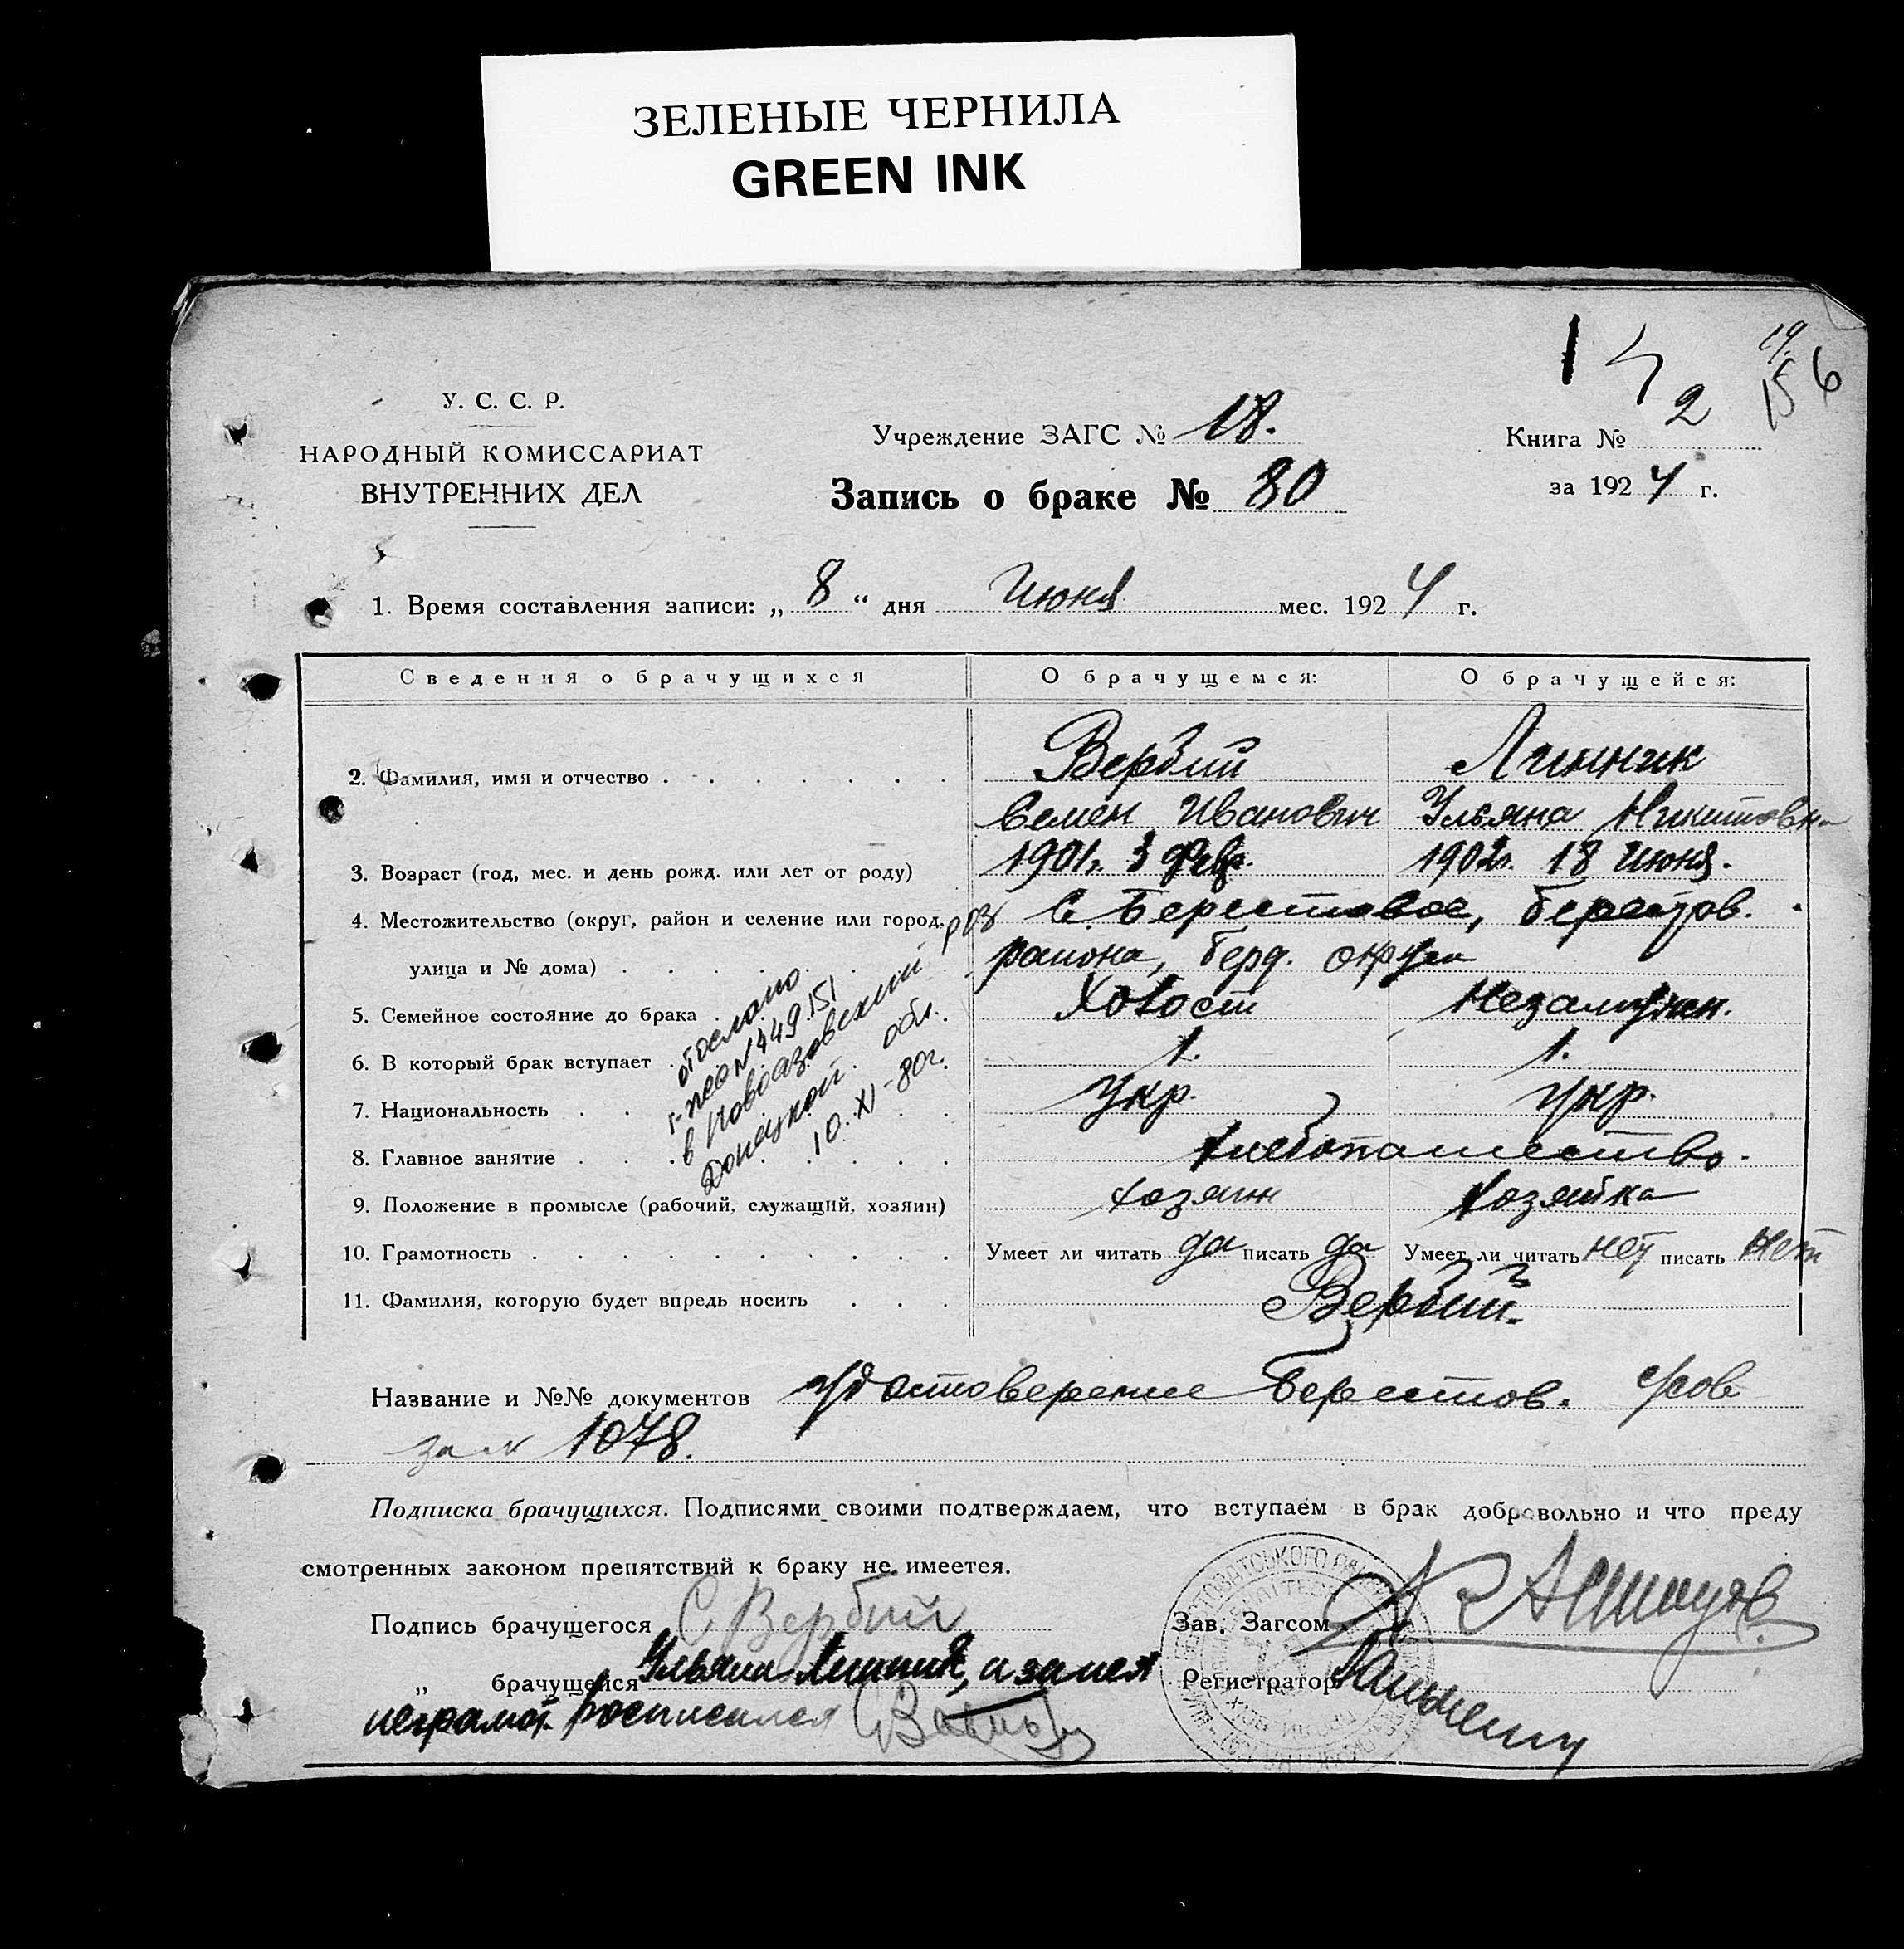 ЗЕЛЕНЫЕ ЧЕРНИЛА
GREEN INK
У. С. С. Р.
НАРОДНЫЙ КОМИССАРИАТ
ВНУТРЕННИХ ДЕЛ
Учреждение ЗАГС № 18.
Запись о браке № 80
Книга № 2
за 1924 г.
156
1. Время составления записи: „ 8 “ дня Июня мес. 1924 г.
Сведения о брачущихся О брачущемся: О брачущейся:
2. Фамилия, имя и отчество Вербий Линник
Семен Иванович Ульяна Никитовн
3. Возраст (год, мес. и день рожд. или лет от роду) 1901г. 3 февр. 1902г. 18 июня.
4. Местожительство (округ, район и селение или город, С. Берестовое, берестов.
улица и № дома) района, берд. округа
5. Семейное состояние до брака Холост Незамужн.
6. В который брак вступает 1. 1.
7. Национальность Укр. Укр.
8. Главное занятие хлебопашество.
9. Положение в промысле (рабочий, служащий, хозяин) хозяин хозяйка
10. Грамотность Умеет ли читать да писать да Умеет ли читать нет писать нет
11. Фамилия, которую будет впредь носить Вербий.
отослано
в Новоазовский РОЗ
Донецкой обл.
10.XI-80г.
Название и №№ документов удостоверение Берестов. с/сов
за № 1078.
Подписка брачущихся. Подписями своими подтверждаем, что вступаем в брак добровольно и что преду
смотренных законом препятствий к браку не имеется.
Подпись брачущегося С Вербий Зав. Загсом
„ брачущейся Ульяна Линник, а за нея Регистратор
неграмот. росписался